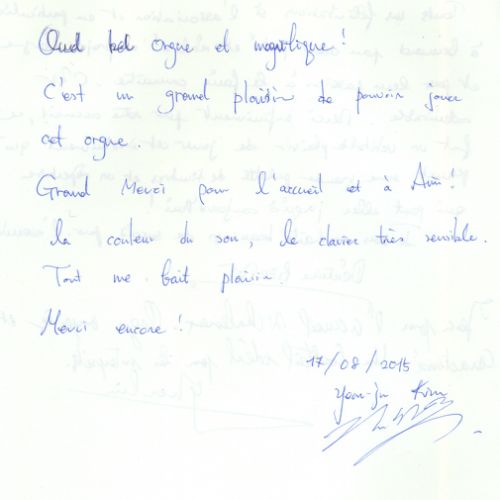 Quel bel orgue et magnifique!
C'est un grand plaisir de pouvoir jouer
cet orgue.
Grand Merci pour l'accueil et à
la couleur du son, le clavier très sensible.
Tout me fait plaisir.
Merci encore!
17/08/2015
Kim